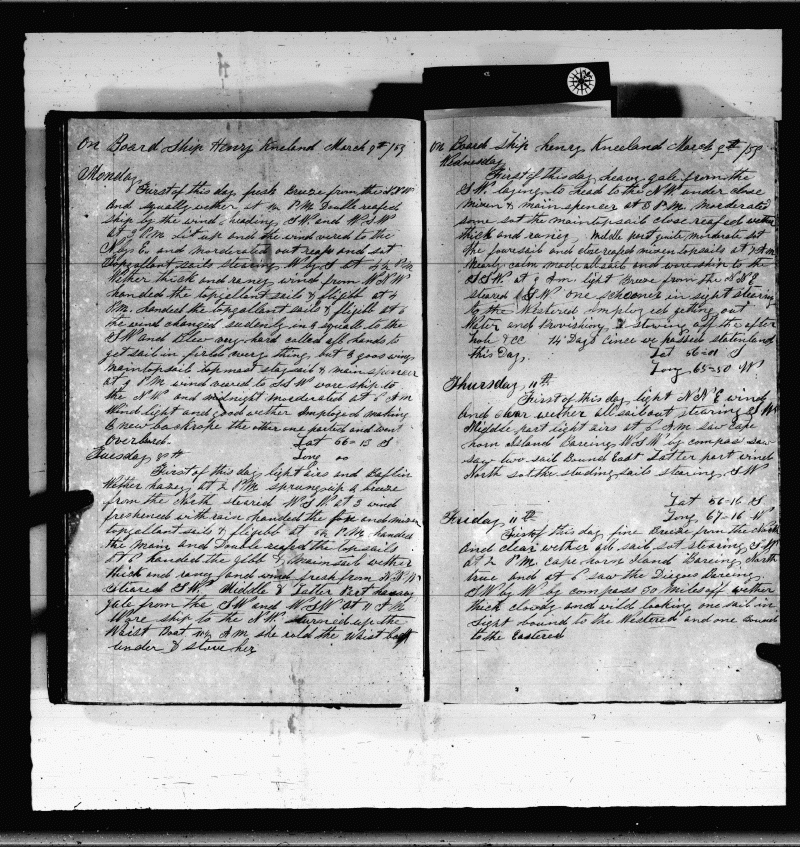 On Board Ship Henry Kneeland March 9th /53
Monday
First of this day fresh Breeze from the SSW
and squally wether at PM Double reefed
ship by the wind heading SW and WSW
at 2 P.M. let up and the wind vered to the
N by E and morderated out reefs and sat
topgallant sails stearing W by S at 3½ P.M.
Wether thick and raney wind from WNW
handed the topgallant sails & flijib at 4
P.M. handed the topgallant sails & flijib at 6
the wind changed sudenly in a squall to the
SW and Blew very hard called all hands to
get sail in furled every thing but a goos wing
maintopsail topmost staysail & main spencer
at 9 P.M wind veered to SSW wore ship to
the NW and midnight morderated at 6 A M
Wind light and good wether Imployed making
a new backrope the other one parted and went
overboard. Lat 56=13 S
Long 00
Tuesday
First of this day light airs and Baflin
Wether hazey at 2 P.M. sprung up a breeze
from the North steared WSW at 3 wind
freshened with rain handed the fore and mizen
topgallant sails & flijib at P.M. handed
the main and Double reefed the topsails
at 6 handed the Gibb & mainsail wether
thick and raney and wind fresh from NNW
steared SW, Middle & Latter Part heavy
gale from the SW and WSW at 11 A M
Wore ship to the NW turned up the
Waist Boat A.M. she rold the Waist boat
under & stove her
On Board Ship henry Kneeland March 9th /53
Wednesday
First of this day heavy gale from the
SW laying to head to the NW under close
mizen & main spencer at 3 P.M. morderated
some sat the maintopsail close reafed wether
thick and raney. Middle part quite morderate sat
the foursail and close reafed mizen topsails at 7 A.M
Nearly calm made all sail and wore ship to the
SSW. at 9 A.m. light Breeze from the NNE
steared SSW one schooner in sight stearing
to the Westered Imployed getting out
Water and Provishing & stowing off the after
hole &CC 14 Days cince we passed statenland
this Day, Lat 56=01 S
Long 65=50 W
Thursday 11th
First of this day light N N E wind
and clear wether all sail out stearing S W
Middle part light airs at 6 A.M saw Cape
horn Island Bareing W.S.W by compass saw
saw two sail Bound East Latter part wind
North sat the studing sails stearing SW
Lat 56=16 S
Long 67=16 W
Friday 11th
First of this day fine Breeze from the North
and clear wether all sail sat stearing S W
at 2 P.M. Cape horn Island Bareing North
true and at 6 saw the Diegos Bareing
SW by W by compass 30 miles off wether
thick cloudy and wild looking one sail in
sight bound to the Westered and one bound
to the Eastered